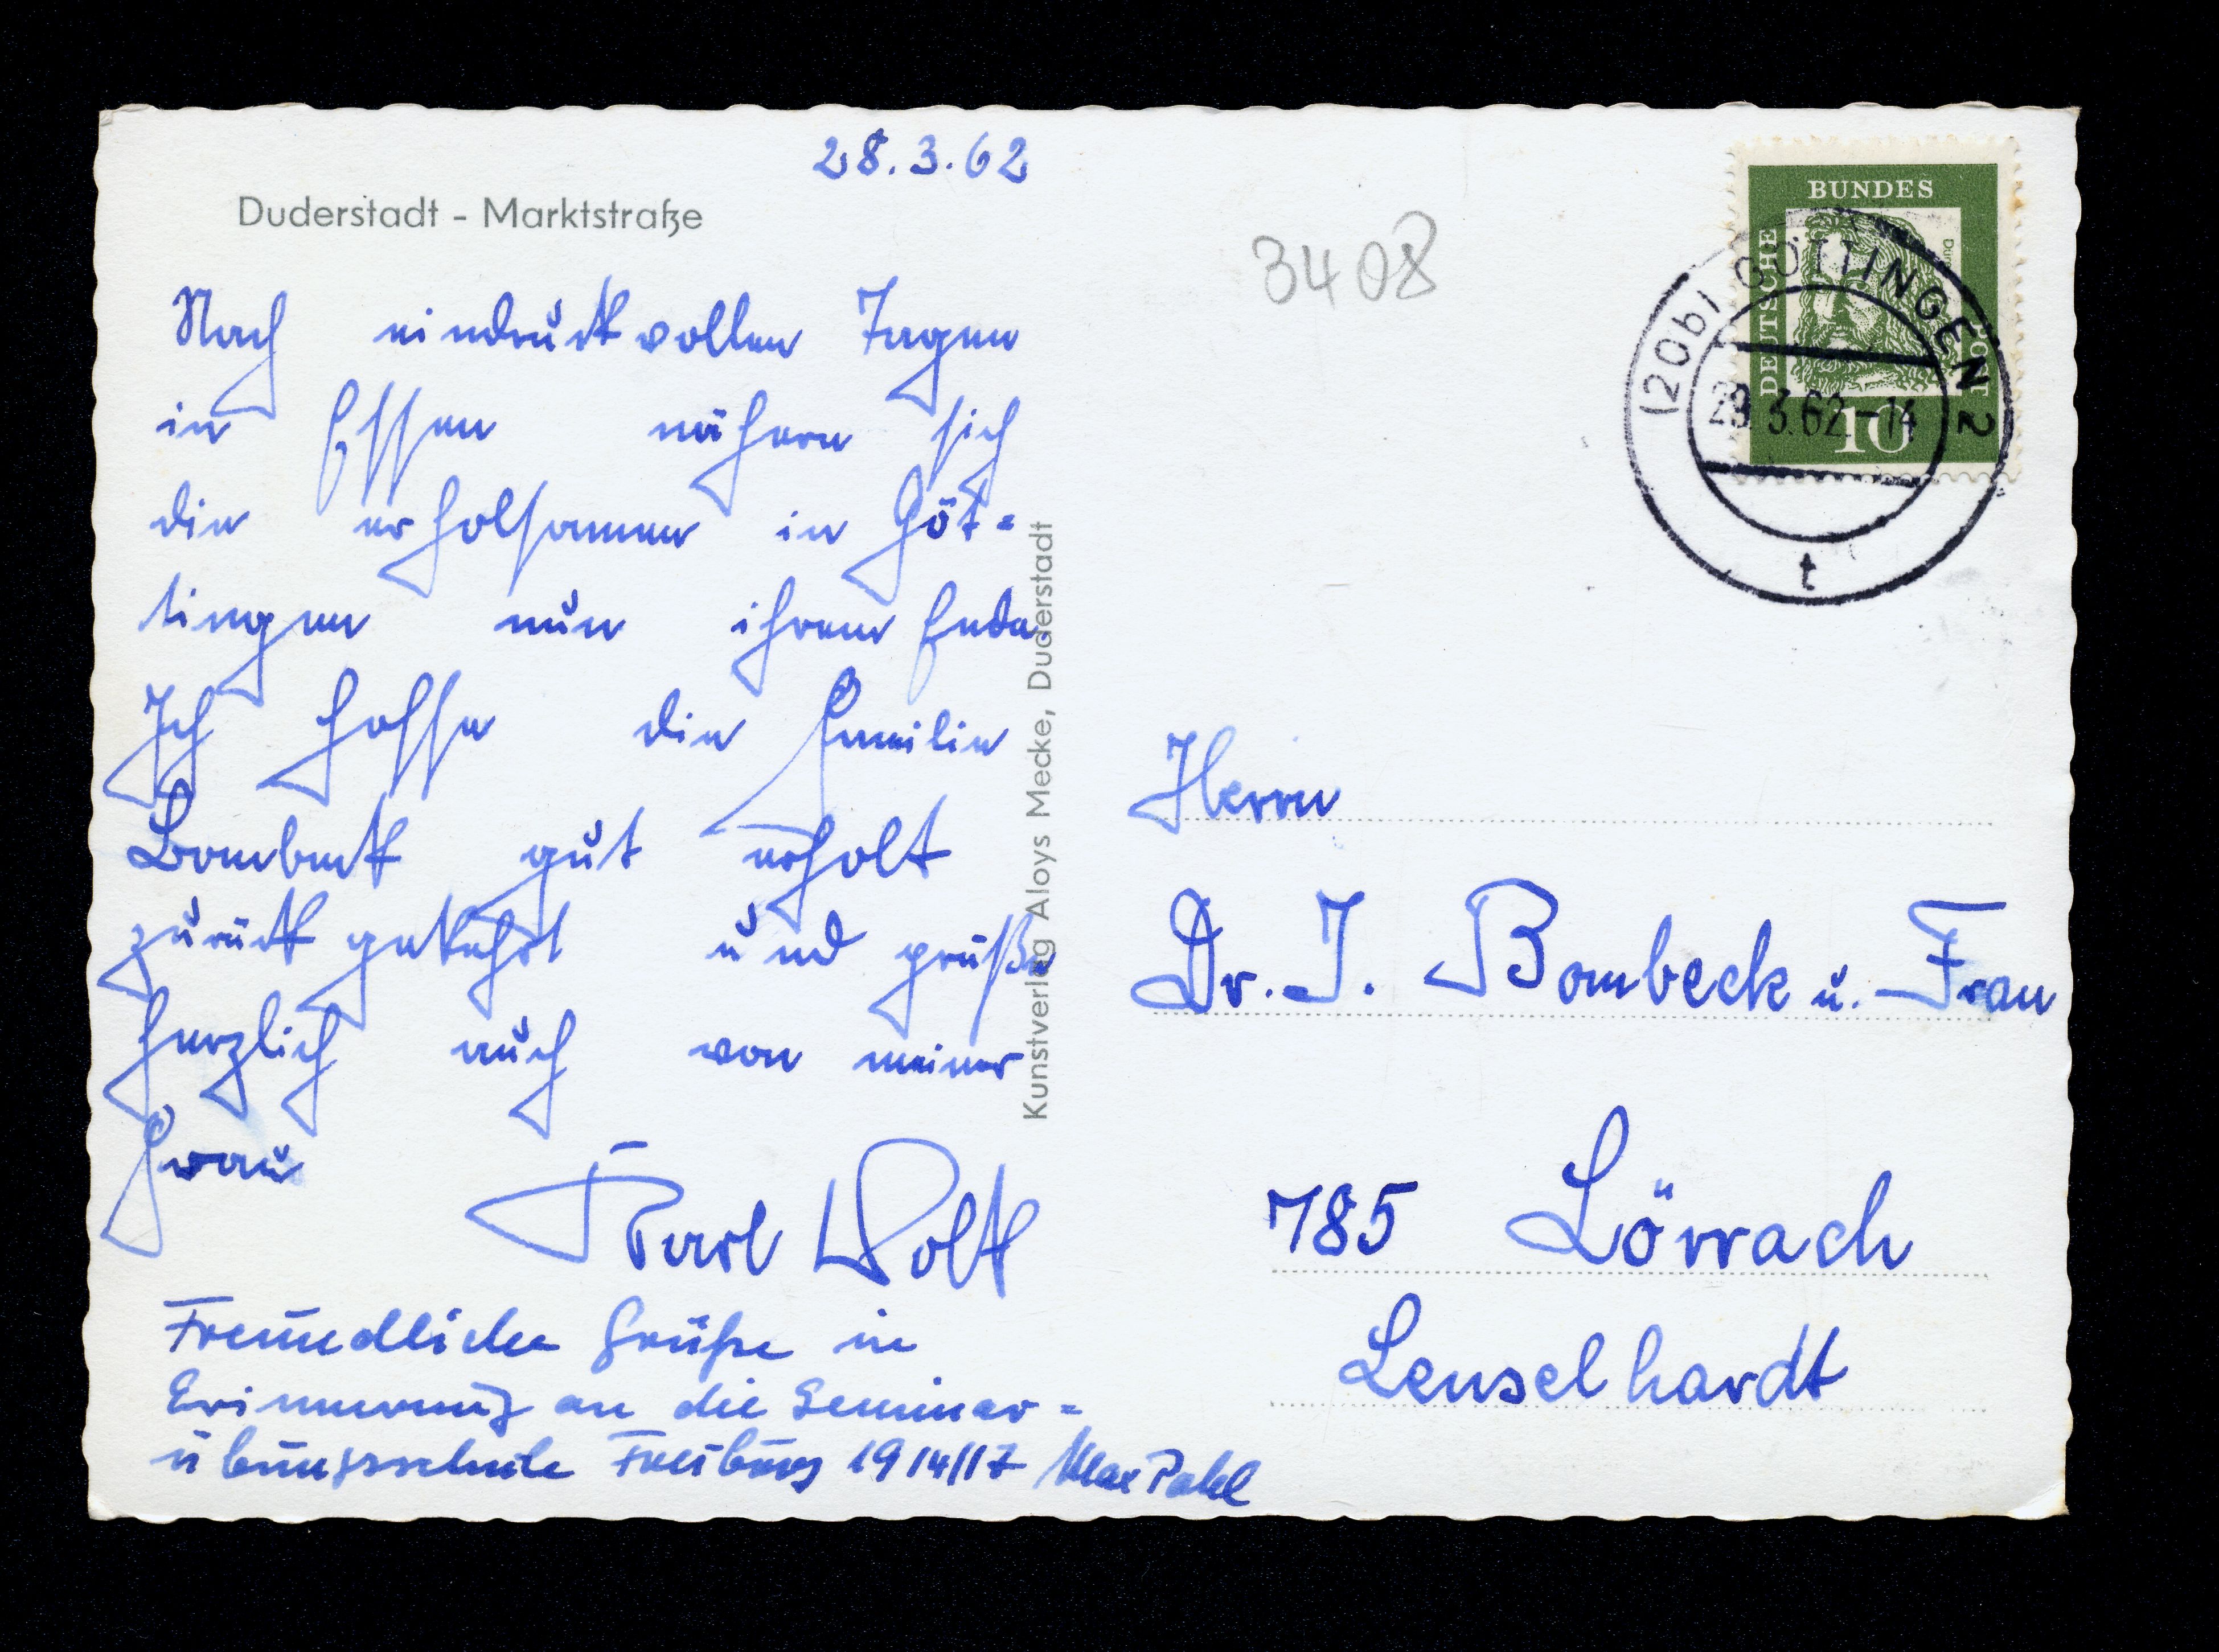 28.3.62
Duderstadt - Marktstraße
Nach eindruckvollen Tagen
in Essen nähern sich
die erholsamen in Göt=
tingen nun ihrem Ende.
Ich hoffe die Familie
Bombeck gut erholt
zurückgekehrt und grüße
herzlich auch von meiner
Frau
Karl Wolk
Freundliche Grüße in
Erinnerung an die Seminar=
übungsschule Freiburg 1914/17 Max Pahl
Kunstverlag Aloys Mecke, Duderstadt
3408
BUNDES
DEUTSCHE
POST
Dürer
10
(20b) GÖTTINGEN 2
29.3.62.-14
t
Herrn
Dr. J. Bombeck u. Frau
785 Lörrach
Lenselhardt